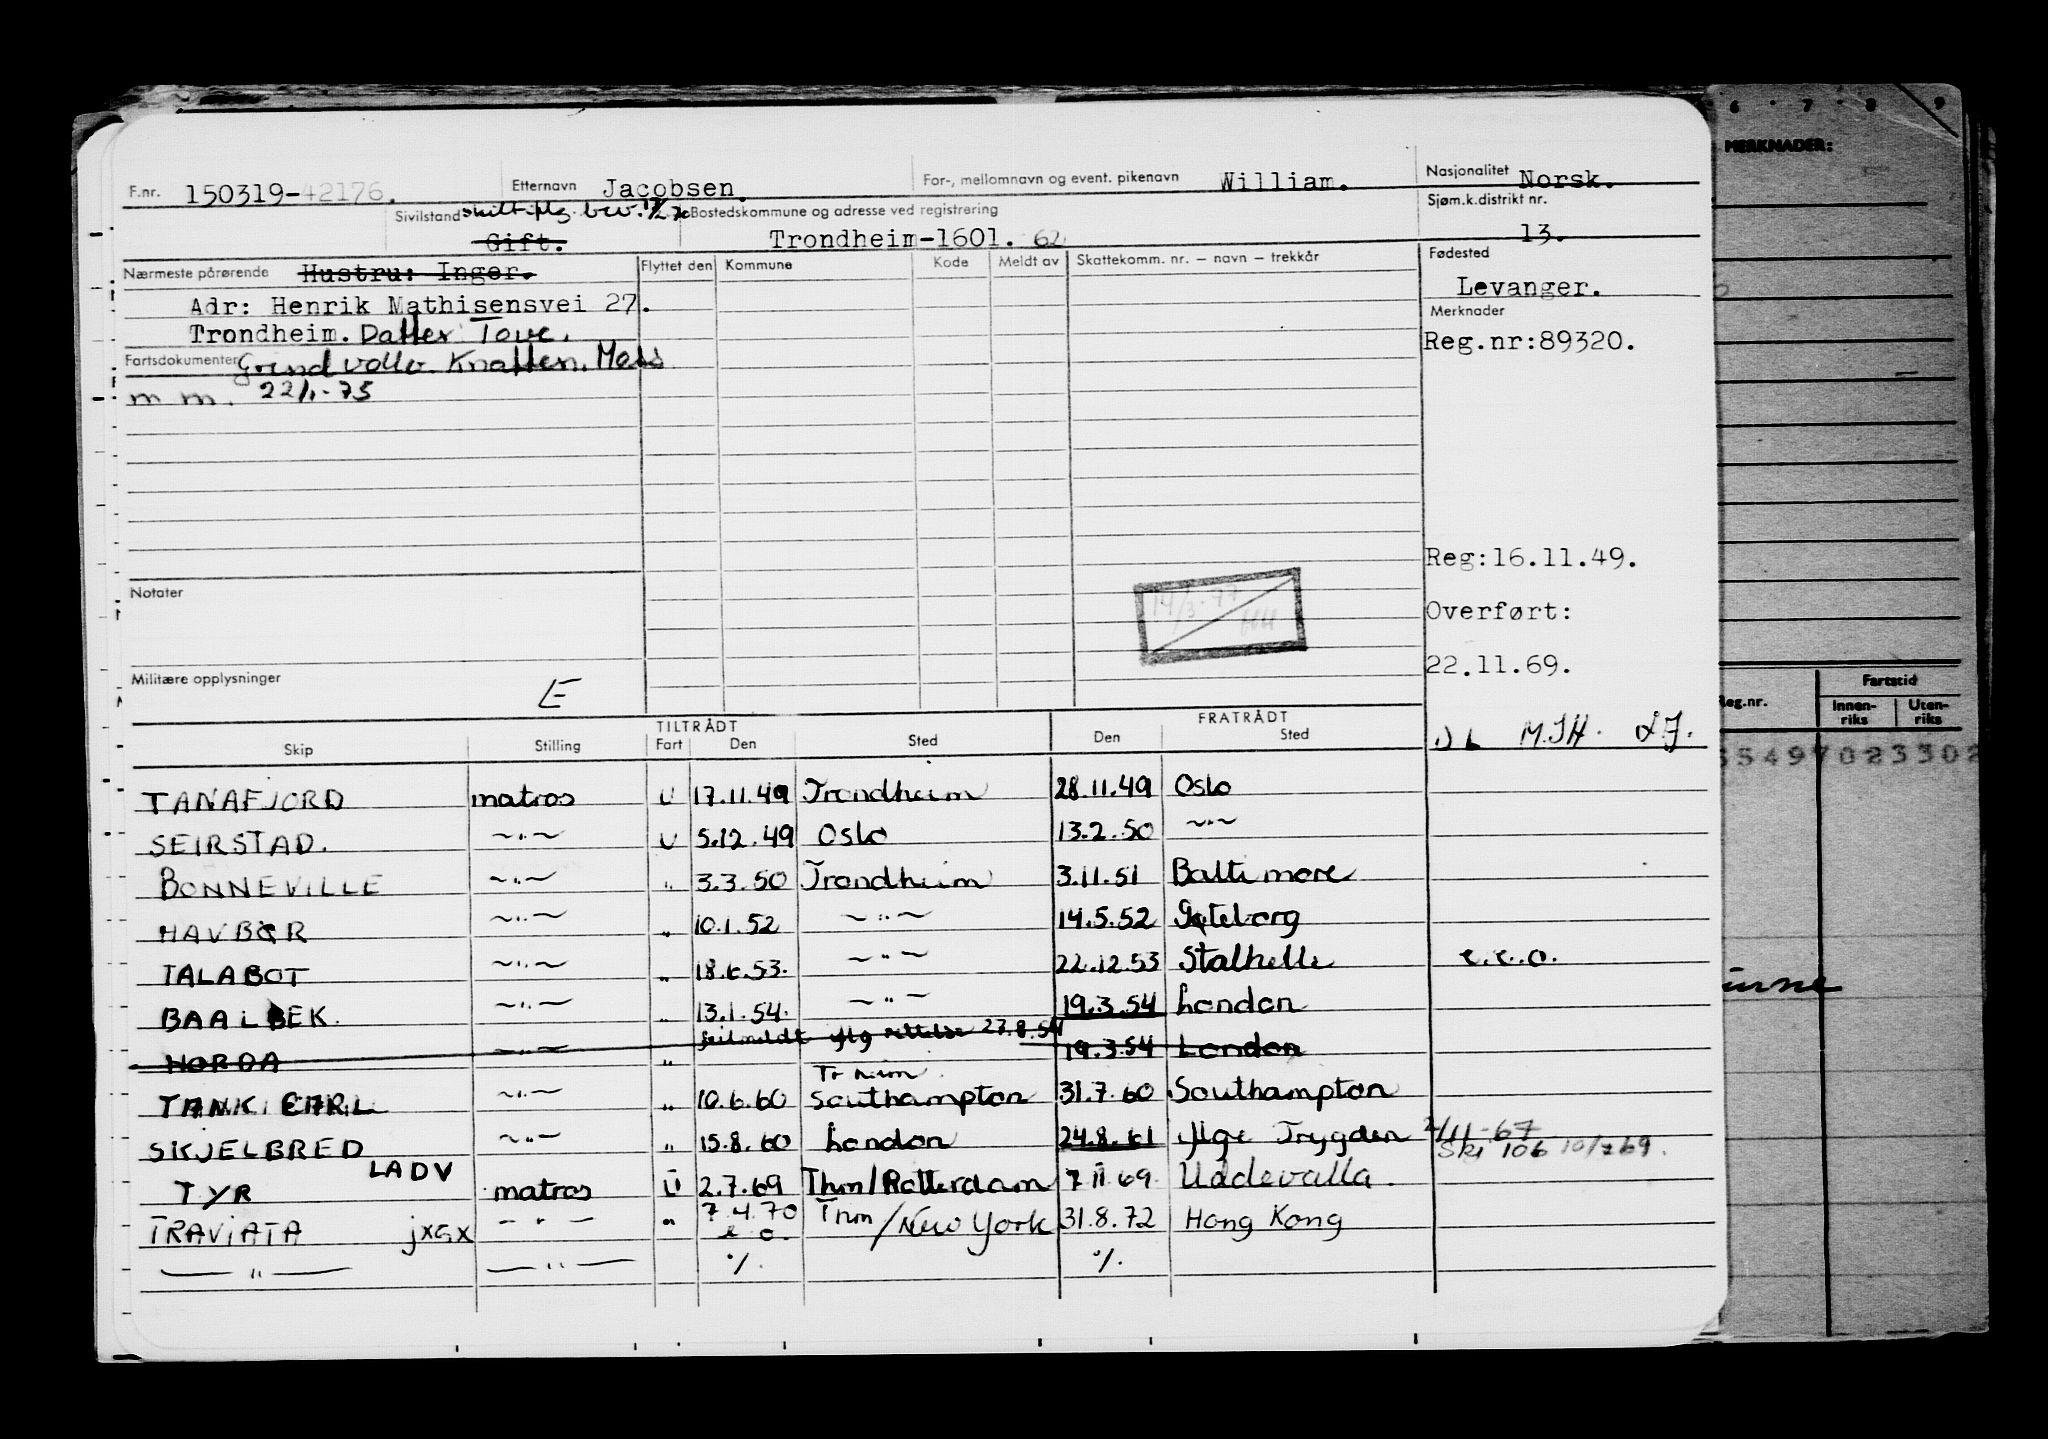 F.nr. 150319-42176. Etternavn Jacobsen. For-, mellomnavn og event. pikenavn William. Nasjonalitet Norsk.
Sivilstand Bostedskommune og adresse ved registrering Sjøm.k.distrikt nr.
Gift. Trondheim-1601. 62 13.
Nærmeste pårørende Hustru: Inger. Flyttet den Kommune Kode Meldt av Skattekomm. nr. — navn — trekkår Fødested
Adr: Henrik Mathisensvei 27. Levanger.
Trondheim. Datter Tove. Merknader
Fartsdokumenter Reg.nr:89320.
m m. 22/1-75
Reg:16.11.49.
Notater
Overført:
22.11.69.
Militære opplysninger E
TILTRÅDT FRATRÅDT
Skip Stilling Fart Den Sted Den Sted
M.J.H.
TANAFJORD matros U 17.11.49 Trondheim 28.11.49 Oslo
SEIRSTAD. ~"~ U 5.12.49 Oslo 13.2.50 ~"~
BONNEVILLE ~"~ " 3.3.50 Trondheim 3.11.51 Baltimore
HAVBØR ~"~ " 10.1.52 ~"~ 14.5.52 Gøteborg
TALABOT ~"~ " 18.6.53. ~"~ 22.12.53 Stalhelle
BAALBEK. ~"~ " 13.1.54. ~"~ 19.3.54 London
feilmeldt iflg rettelse 27.8.54
HORDA ~"~ " 19.3.54 London
TANK EARL ~"~ " 10.6.60 Southampton 31.7.60 Southampton
SKJELBRED ~"~ " 15.8.60 London 24.8.61 iflge Trygden 2/11-67
Ski 106 10/7 69.
TYR LADV matros U 2.7.69 Thm/Rotterdam 7 11 69. Uddevalla.
TRAVIATA jxGx —"— " 7.4.70 Thm/New York 31.8.72 Hong Kong
—"— —"— ٪. ٪.
6 7 8 9
MERKNADER:
Reg.nr. Fartstid
Innen-riks Uten-riks